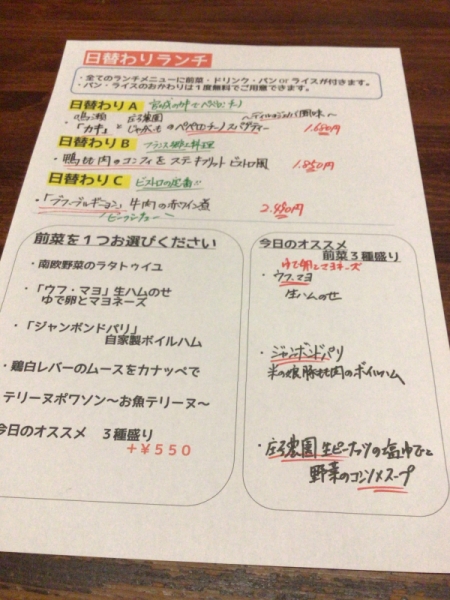 日替わりランチ
・全てのランチメニューに前菜・ドリンク・パンorライスが付きます。
・パン・ライスのおかわりは1度無料でご用意できます。
日替わりA
鳴瀬 庄子農園
「カキ」とじゃがもものペペロンチーノスパゲティー 1.680円
日替わりB フランス郷土料理
・鴨もも肉のコンフィをステークフリット ビストロ風 1.850円
日替わりC ビストロの定番
・「ブフ・ブルギニョン」牛肉の赤ワイン煮 2.480円
ビーフシチュー
前菜を1つお選びください
・南欧野菜のラタトゥイユ
・「ウフ・マヨ」生ハムのせ
ゆで卵とマヨネーズ
・「ジャンボンドパリ」
自家製ボイルハム
・鶏白レバーのムースをカナッペで
テリーヌポワソン～お魚テリーヌ～
今日のオススメ 3種盛り
＋￥550
今日のオススメ
前菜3種盛り
ゆで卵とマヨネーズ
・ウフマヨ
生ハムのせ
・ジャンボンドパリ
米の娘豚もも肉のボイルハム
・庄子農園 生ピーナッツの塩ゆでと
野菜のコンソメスープ